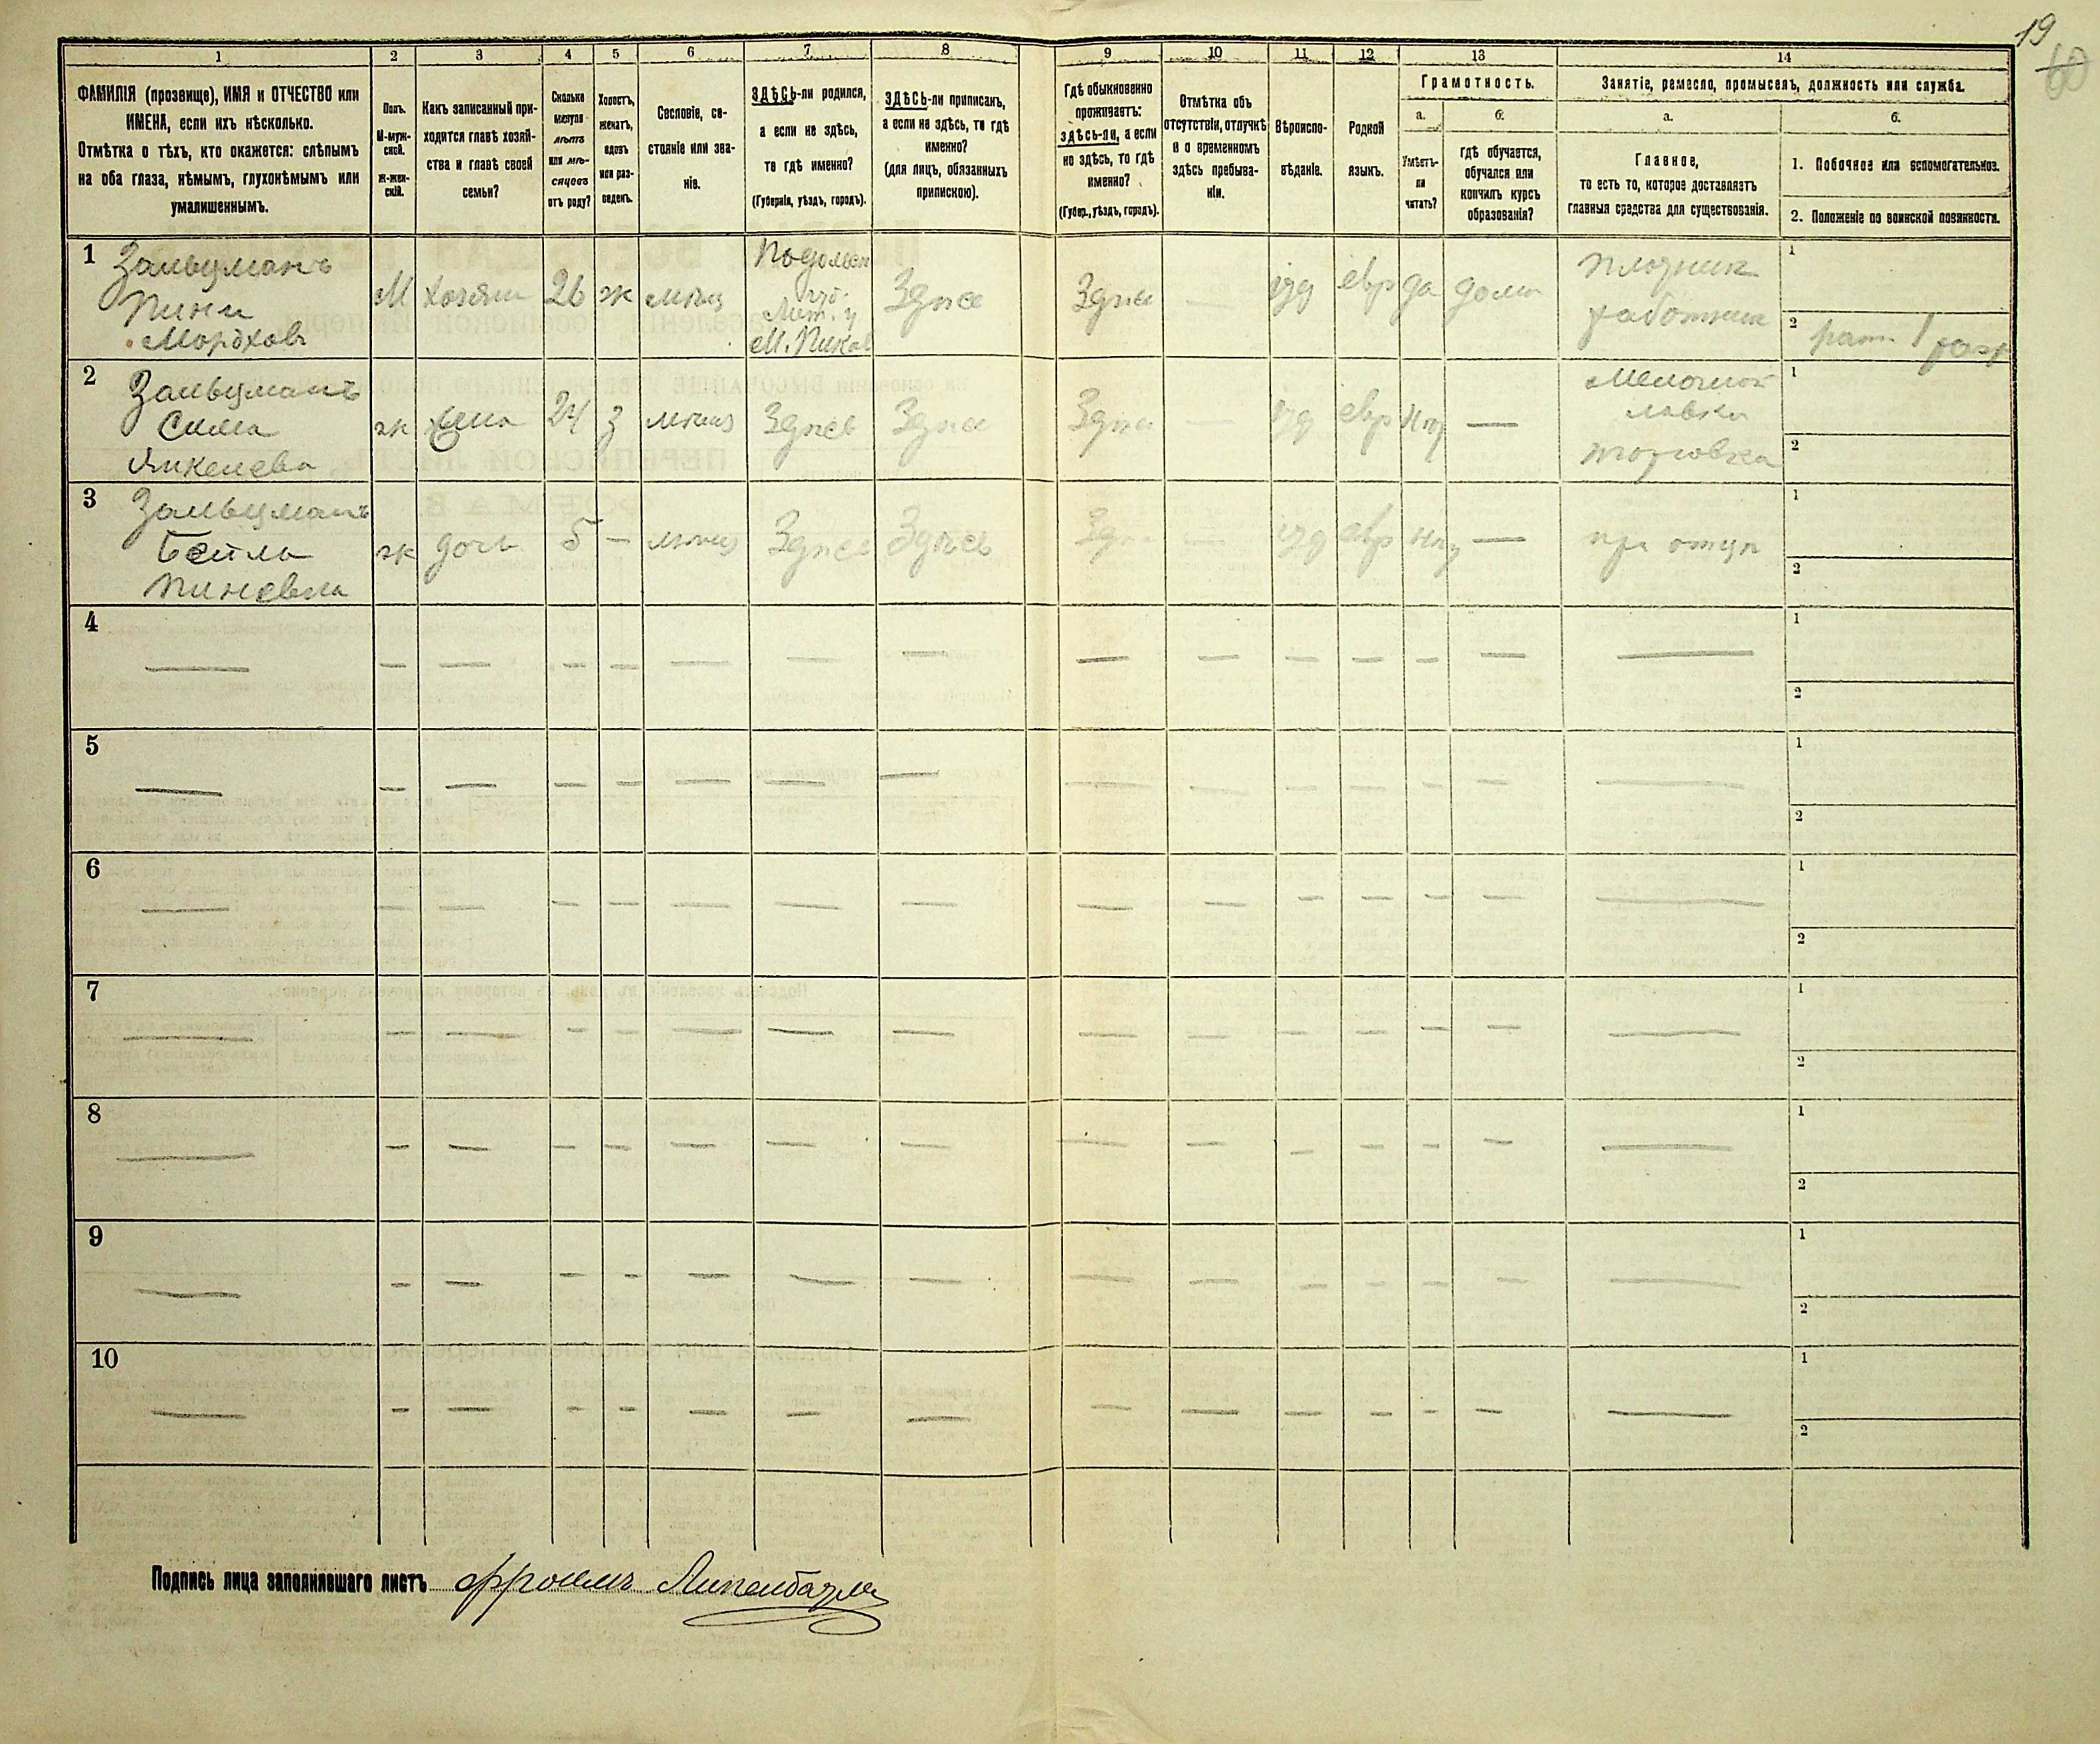 19
60
1
2
3
4
5
6
7
8
9
10
11
12
13
14
ФАМИЛІЯ (прозвище), ИМЯ и ОТЧЕСТВО или
ИМЕНА, если ихъ нѣсколько.
Отмѣтка о тѣхъ, кто окажется: слѣпымъ
на оба глаза, нѣмымъ, глухонѣмымъ или
умалишеннымъ.
Полъ.
М-муж-
ской.
Ж-жен-
скій.
Какъ записанный при-
ходится главѣ хозяй-
ства и главѣ своей
семьи?
Сколько
минуло
лѣтъ
или мѣ-
сяцевъ
отъ роду?
Холостъ,
женатъ,
вдовъ
или раз-
веденъ.
Сословіе, со-
стояніе или зва-
ніе.
ЗДѢСЬ-ли родился,
а если не здѣсь,
то гдѣ именно?
(Губернія, уѣздъ, городъ).
ЗДѢСЬ-ли приписанъ,
а если не здѣсь, то гдѣ
именно?
(для лицъ, обязанныхъ
припискою).
Гдѣ обыкновенно
проживаетъ:
здѣсь-ли, а если
не здѣсь, то гдѣ
именно?
(Губер., уѣздъ, городъ).
Отмѣтка объ
отсутствіи, отлучкѣ
и о временномъ
здѣсь пребыва-
ніи.
Вѣроиспо-
вѣданіе.
Родной
языкъ.
Грамотность.
а.
б.
Умѣетъ-
ли
читать?
гдѣ обучается,
обучался или
кончилъ курсъ
образованія?
Занятіе, ремесло, промыселъ, должность или служба.
а.
б.
Главное,
то есть то, которое доставляетъ
главныя средства для существованія.
1. Побочное или вспомогательное.
2. Положеніе по воинской повинности.
1
Зальцманъ
Пини
Мордховъ
М
хозяин
26
ж
мѣщ
Подольск
губ.
Лет. у
М. Пиков
Здѣсь
Здѣсь
—
іуд
евр
да
дома
плотник
работник
1
2 рат. 1 разр
2
Зальцманъ
Сима
Янкелева
ж
жена
24
з
мѣщ
Здѣсь
Здѣсь
Здѣсь
—
іуд
евр
нѣт
—
Мелочной
лавки
торговка
1
2
3
Зальцманъ
Бейла
Пиневна
ж
дочь
5
—
мѣщ
Здѣсь
Здѣсь
Здѣсь
—
іуд
евр
нѣт
—
при отцѣ
1
2
4
1
2
5
1
2
6
1
2
7
1
2
8
1
2
9
1
2
10
1
2
Подпись лица заполнявшаго листъ Фроимъ